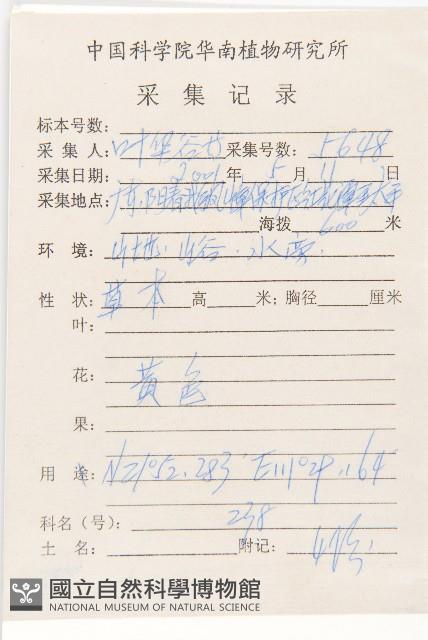 中国科学院华南植物研究所
采集记录
标本号数：
采集人：叶华谷 采集号数：5648
采集日期：2001年5月11日
采集地点：广东阳春
海拨 600 米
环 境：山地·山谷·水
性 状：草本 高 米；胸径 厘米
叶：
花：黄色
果：
用 途：N21°52.283' E111°29.1164
科名（号）：238
土 名：附记：
國立自然科學博物館
NATIONAL MUSEUM OF NATURAL SCIENCE